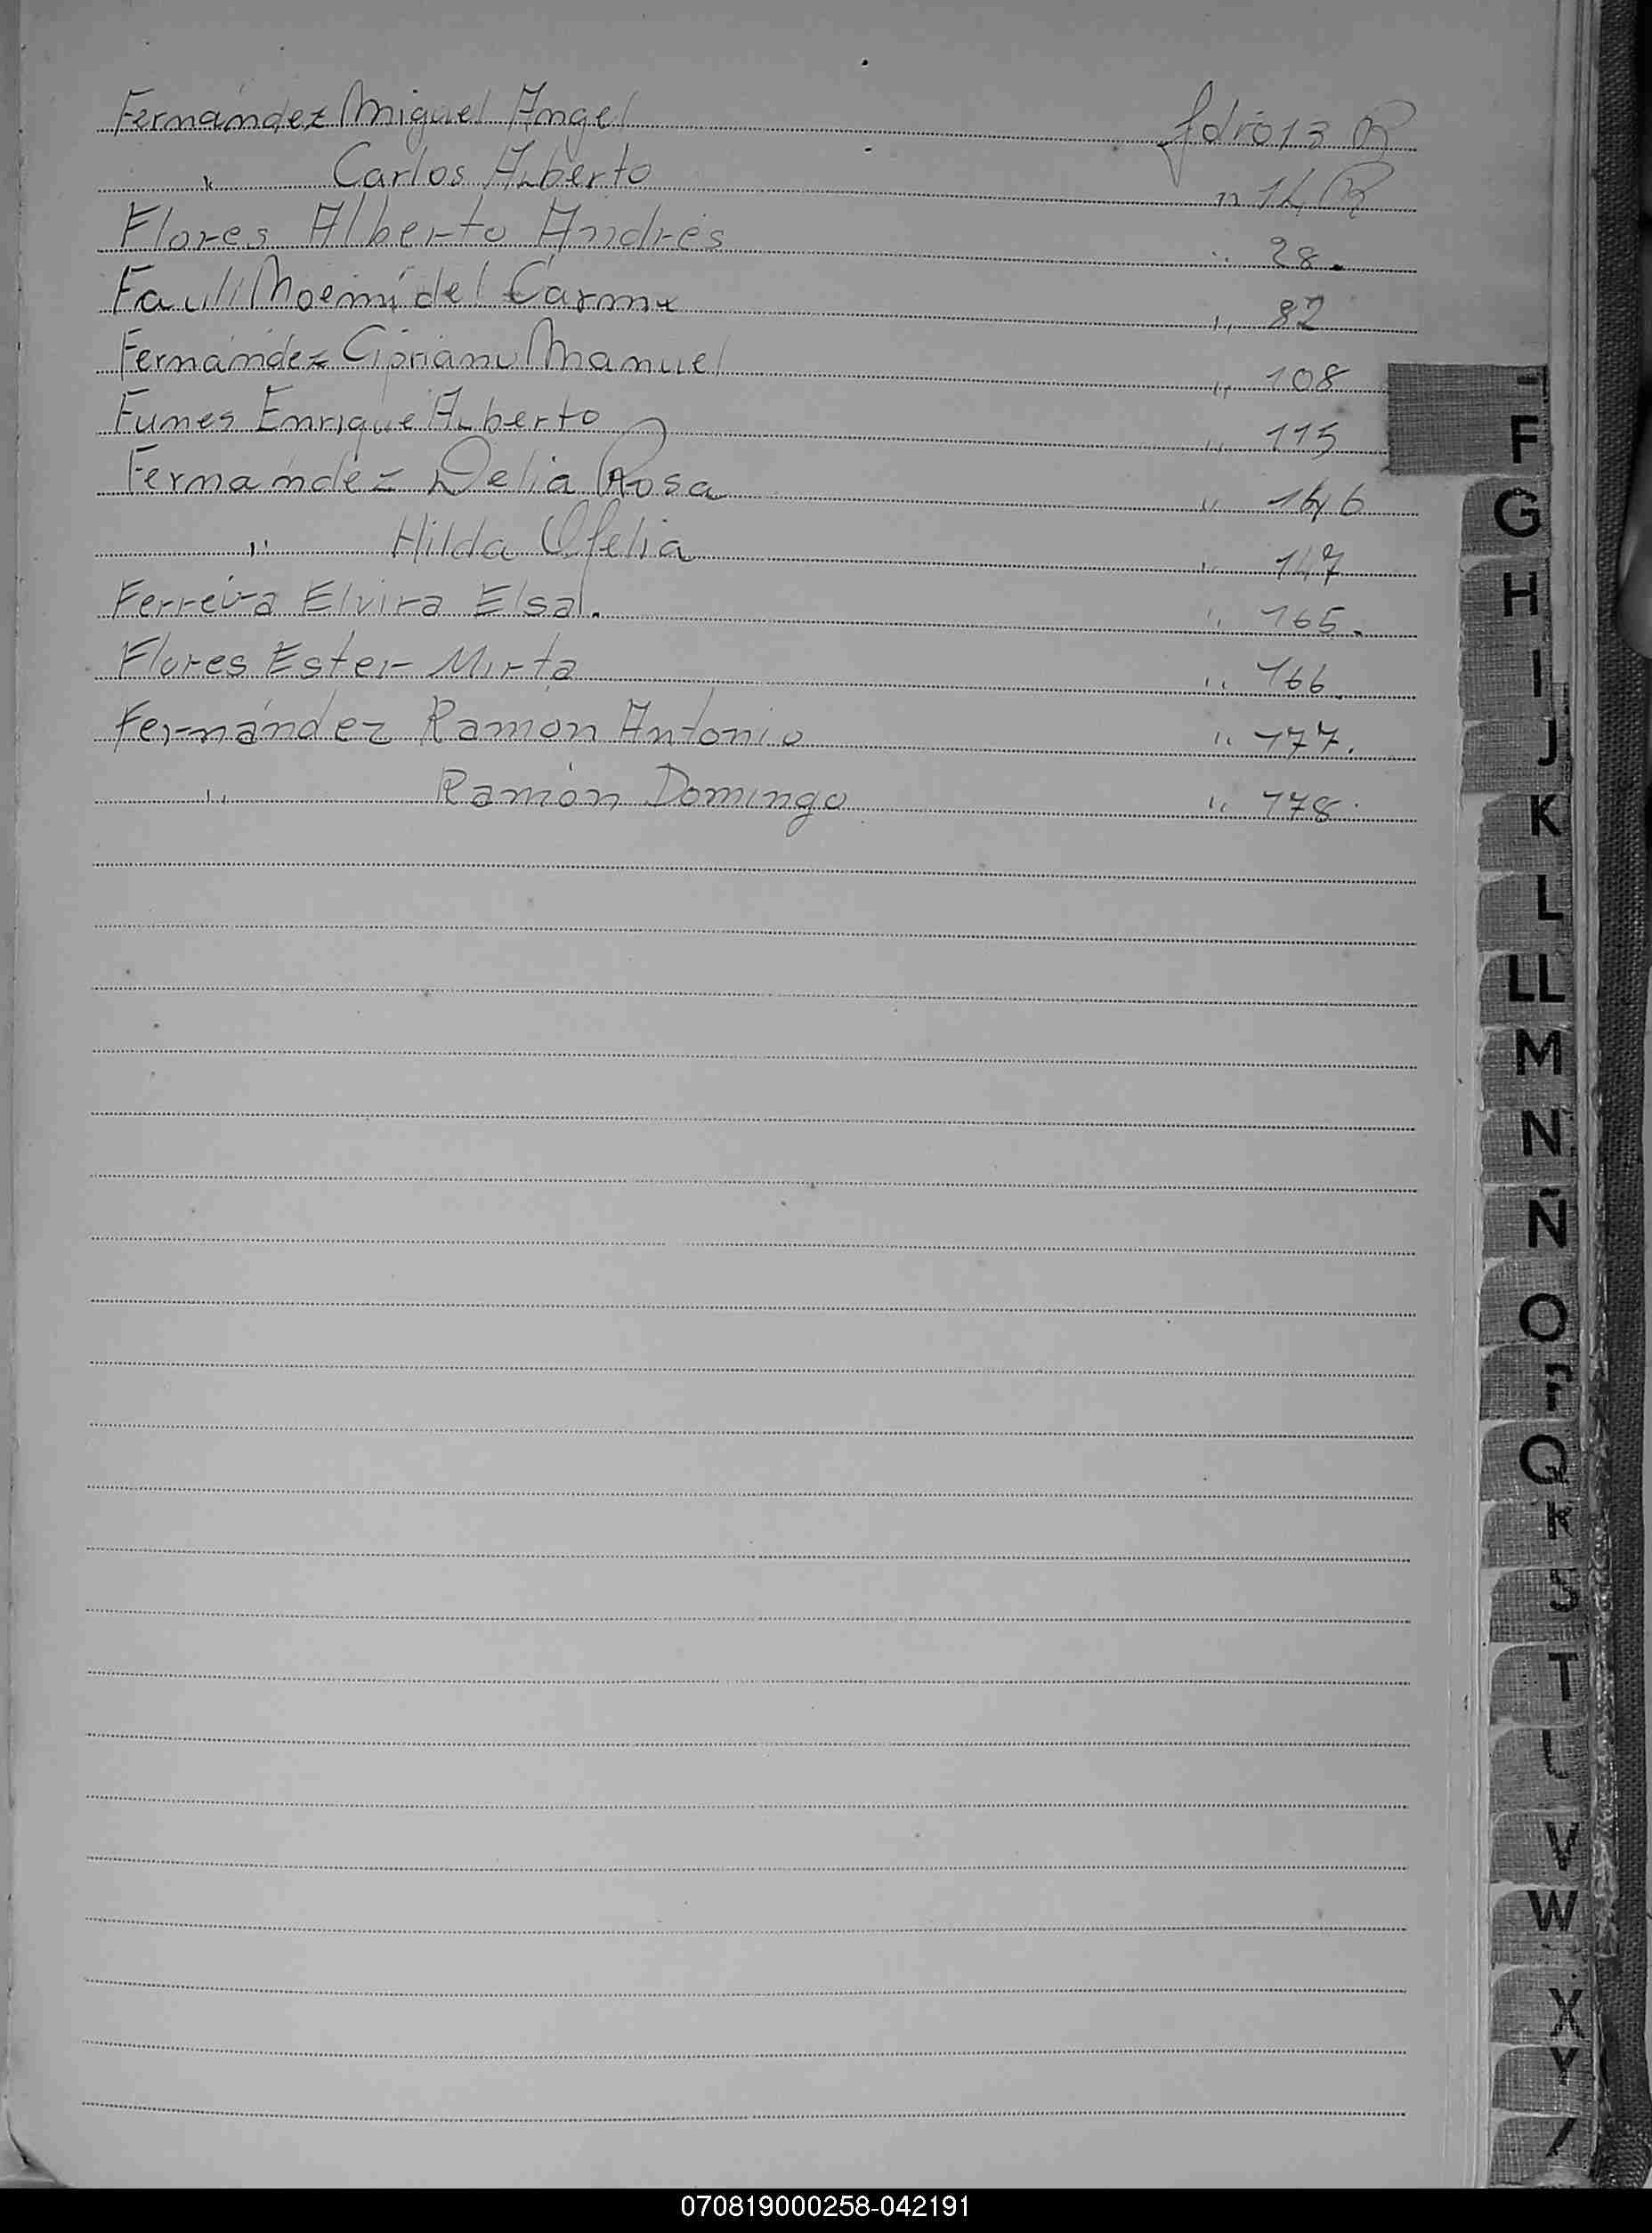 Fernández Miguel Angel folio 13 R
" Carlos Alberto " 14 R
Flores Alberto Andrés " 28.
Fauli Noemí del Carmen " 82
Fernández Cipriano Manuel " 108
Funes Enrique Alberto " 115
Fernández Delia Rosa " 146
" Hilda Ofelia " 147
Ferreira Elvira Elsa. " 165.
Flores Ester Mirta " 166.
Fernández Ramón Antonio " 177.
" Ramón Domingo " 178.
F
G
H
I
J
K
L
LL
M
N
Ñ
O
P
Q
R
S
T
U
V
W
X
Y
070819000258-042191